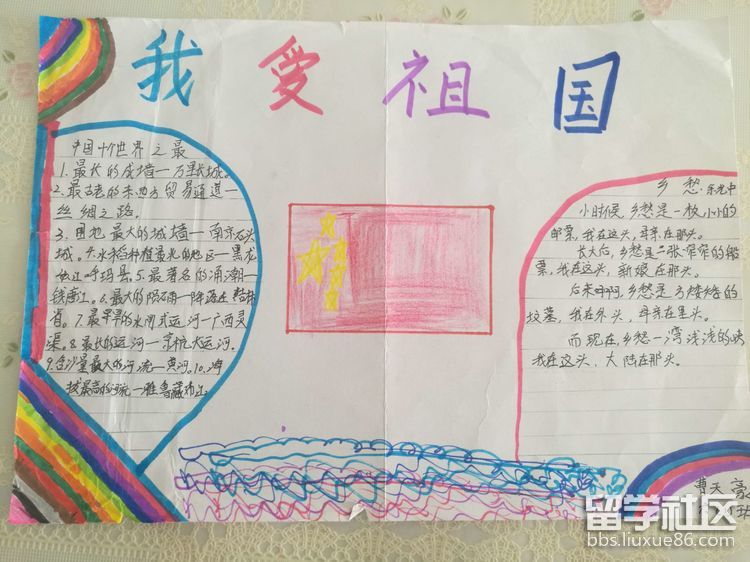 我爱祖国
中国十个世界之最
1.最长的城墙一万里长城。
2.最古老的东西方贸易通道一
丝绸之路。
3.围地最大的城墙一南京石头
城。4.水稻种植最北的地区一黑龙
江呼玛县.5.最著名的涌潮一
钱塘江.6.最大的陨石雨一降落在吉林
省。7.最早的水闸式运河一广西灵
渠。8.最长的运河一京杭大运河.
9.含沙量最大的河流一黄河.10.海
拔最高的河流一雅鲁藏布江
乡愁.余光中
小时候,乡愁是一枚小小的
邮票,我在这头,母亲在那头。
长大后,乡愁是一张窄窄的船
票,我在这头,新娘在那头。
后来啊,乡愁是一方矮矮的
坟墓,我在外头,母亲在里头。
而现在,乡愁一湾浅浅的峡
我在这头,大陆在那头。
曹天豪
留学社区
bbs.liuxue86.com